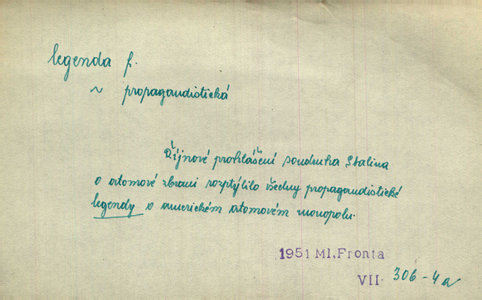 legenda f.
~ propagandistická
Říjnové prohlášení soudruha Stalina
o atomové zbrani rozptýlilo všechny propagandistické
legendy o americkém atomovém monopolu.
1951 Ml. Fronta
VII. 306-4a